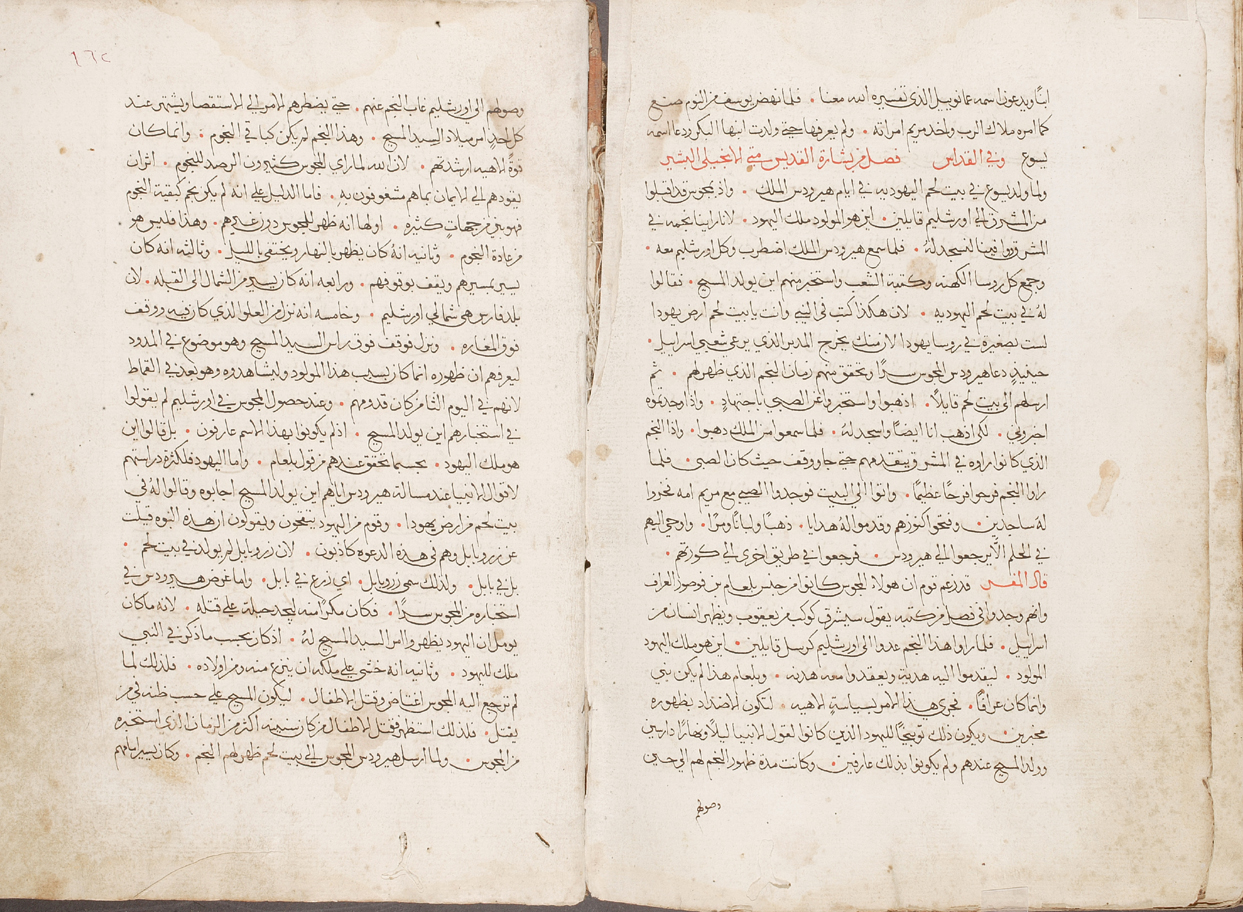 ابنًا ويدعون اسمه عمانوييل الذي تفسيره الله معنا • فلما نهض يوسف من النوم صنع
كما امره ملاك الرب واخذ مريم امراته • ولم يعرفها حتى ولدت ابنها البكر ودعا اسمه
يسوع وفي القداس فصل من بشارة القديس متى الانجيلي البشير
ولما ولد يسوع في بيت لحم اليهوديه في ايام هيرودس الملك • واذ مجوس قد اقبلوا
من المشرق الى اورشليم قايلين • اين هو المولود ملك اليهود • لانا راينا نجمه في
المشرق ووافينا لنسجد لهُ • فلما سمع هيرودس الملك اضطرب وكل اورشليم معه •
وجمع كل روسا الكهنه وكتبة الشعب واستخبر منهم اين يولد المسيح • فقالوا
لهُ في بيت لحم اليهوديه • لان هكذا كتب في النبي وانت يا بيت لحم ارض يهودا
لست بصغيرة في روسا يهودا لان منك يخرج المدبر الذي يرعى شعبي اسراييل •
حينيذٍ دعا هيرودس المجوس سرًا وتحقق منهم زمان النجم الذي ظهر لهم • ثم
ارسلهم الى بيت لحم قايلاً • اذهبوا واستخبروا عن الصبي باجتهادٍ • واذا وجدتموه
اخبروني • لكي اذهب انا ايضًا واسجد لهُ • فلما سمعوا من الملك ذهبوا • واذا النجم
الذي كانوا راوه في المشرق يتقدمهم حتى جا ووقف حيث كان الصبي • فلما
راوا النجم فرحوا فرحًا عظيمًا • واتوا الى البيت فوجدوا الصبي مع مريم امه فخروا
لهُ ساجدين • وفتحوا كنوزهم وقدموا لهُ هدايا • ذهبًا ولبانًا ومرًا • واوحي اليهم
في الحلم الا يرجعوا الى هيرودس • فرجعوا في طريق اخرى الى كورتهم •
قال المفسر قد زعم قوم ان هولا المجوس كانوا من جنس بلعام بن فوصور العراف
وانهم وجدوا في فصل من كتبه يقول سيشرق كوكب من يعقوب ويظهر انسان من
اسراييل • فلما راوا هذا النجم غدوا الى اورشليم كرسل قايلين • اين هو ملك اليهود
المولود • ليقدموا اليه هدية ويعقدوا معه هدنه • وبلعام هذا لم يكن نبي
وانما كان عرافًا • فجرى هذا الامر لسياسةٍ الاهيه • لتكون الاضداد بظهوره
مخبرين • ويكون ذلك توبيخًا لليهود الذين كانوا لقول الانبيا ليلاً ونهارًا دارسين
وولد المسيح عندهم ولم يكونوا بذلك عارفين • وكانت مدة ظهور النجم لهم الى حين
وصولهم
١٦٢
وصولهم الى اورشليم غاب النجم عنهم • حتى يضطرهم الامر الى الاستقصا ويشتهر عند
كل احدٍ امر ميلاد السيد المسيح • وهذا النجم لم يكن كباقي النجوم • وانما كان
قوةً الاهيه ارشدتهم • لان الله لما راى المجوس كثيرون الرصد للنجوم • اثر ان
يقودهم الى الايمان بما هم مشغوفون بهِ • فاما الدليل على انه لم يكن نجم كبقية النجوم
فهو بين من جهاتٍ كثيره • اولها انه ظهر للمجوس دون غيرهم • وهذا فليس هو •
من عادة النجوم • وثانيه انه كان يظهر بالنهار ويختفي بالليل • وثالثه انه كان
يسير بمسيرهم ويقف بوقوفهم • ورابعه انه كان يسير من الشمال الى القبله • لان
بلد فارس هي شمالي اورشليم • وخامسه انه نزل من العلو الذي كان فيه ووقف
فوق المغاره • ونزل فوقف فوق راس السيد المسيح وهو موضوع في المدود
ليعرفهم ان ظهوره انما كان بسبب هذا المولود وليشاهدوه وهو بعد في القماط
لانهم في اليوم الثامن كان قدومهم • وعند حصول المجوس في اورشليم لم يقولوا
في استخبارهم اين يولد المسيح • اذ لم يكونوا بهذا الاسم عارفون • بل قالوا اين
هو ملك اليهود • بحسبما تحقق عندهم من قول بلعام • واما اليهود فلكثرة دراستهم
لاقوال الانبيا عند مسالة هيرودس اياهم اين يولد المسيح اجابوه وقالوا لهُ في
بيت لحم من ارض يهودا • وقوم من اليهود يقحون ويقولون ان هذه النبوه قيلت
عن زروبابل وهم في هذه الدعوه كاذبون • لان زروبابل لم يولد في بيت لحم •
بل في بابل • ولذلك سمي زروبابل • اي زرع في بابل • واما غرض هيرودس في
استخباره من المجوس سرًا • فكان مكرًا منه ليجد حيلة على قتله • لانه ما كان
يومل ان اليهود يظهروا امر السيد المسيح لهُ • اذ كان بحسب ما ذكر في النبي
ملك لليهود • وثانيه انه خشي على ملكه ان ينزع منه ومن اولاده • فلذلك لما
لم ترجع اليه المجوس اغتاض وقتل الاطفال • ليكون المسيح على حسب ظنه في من
يقتل • فلذلك استظهر فقتل الاطفال من كان سنينه اكثر من الزمان الذي استخبره
من المجوس • ولما ارسل هيرودس المجوس الى بيت لحم ظهر لهم النجم • وكان يسير امامهم